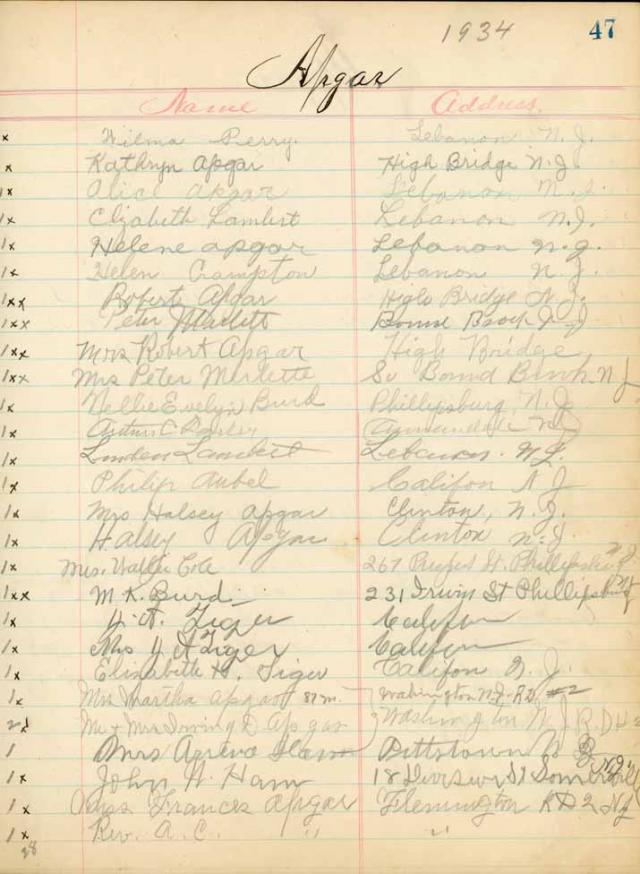 1934 47
Apgar
Name Address.
x Wilma Perry. Lebanon N. J.
x Kathryn Apgar High Bridge N.J.
1x Alice Apgar Lebanon N.J.
1x Elizabeth Lambert Lebanon N.J.
1x Helene Apgar Lebanon N.J.
1x Helen Crampton Lebanon N. J.
1xx Robert Apgar High Bridge N.J.
1xx Peter Bound Brook N J
1xx Mrs Robert Apgar High Bridge
1xx Mrs Peter So Bound Brook N J
1x Nellie Evelyn Burd Phillipsburg, N. J
1x Arthur C Annandale N.J.
1x Linden Lambert Lebanon. N.J.
1x Philip Aubel Califon N J
1x Mrs Halsey Apgar Clinton, N. J.
1x Halsey Apgar Clinton N. J.
1x Mrs. Cole 267 St. Phillipsburg
1xx M. K. Burd 231 Irwin St Phillipsburg
1x Tiger Califon
1x Mrs Tiger Califon
1x Elizabeth H. Tiger Califon N. J.
1x Mrs Martha Apgar Washington N.J. R.D. #2
Mr + Mrs Irving D Apgar Washington N J R.D #2
1 Mrs Ham Pittstown N J
1x John H. Ham 18 St N.J.
1x Miss Frances Apgar Flemington RD 2 NJ
1x Rev. A. C. " "
28